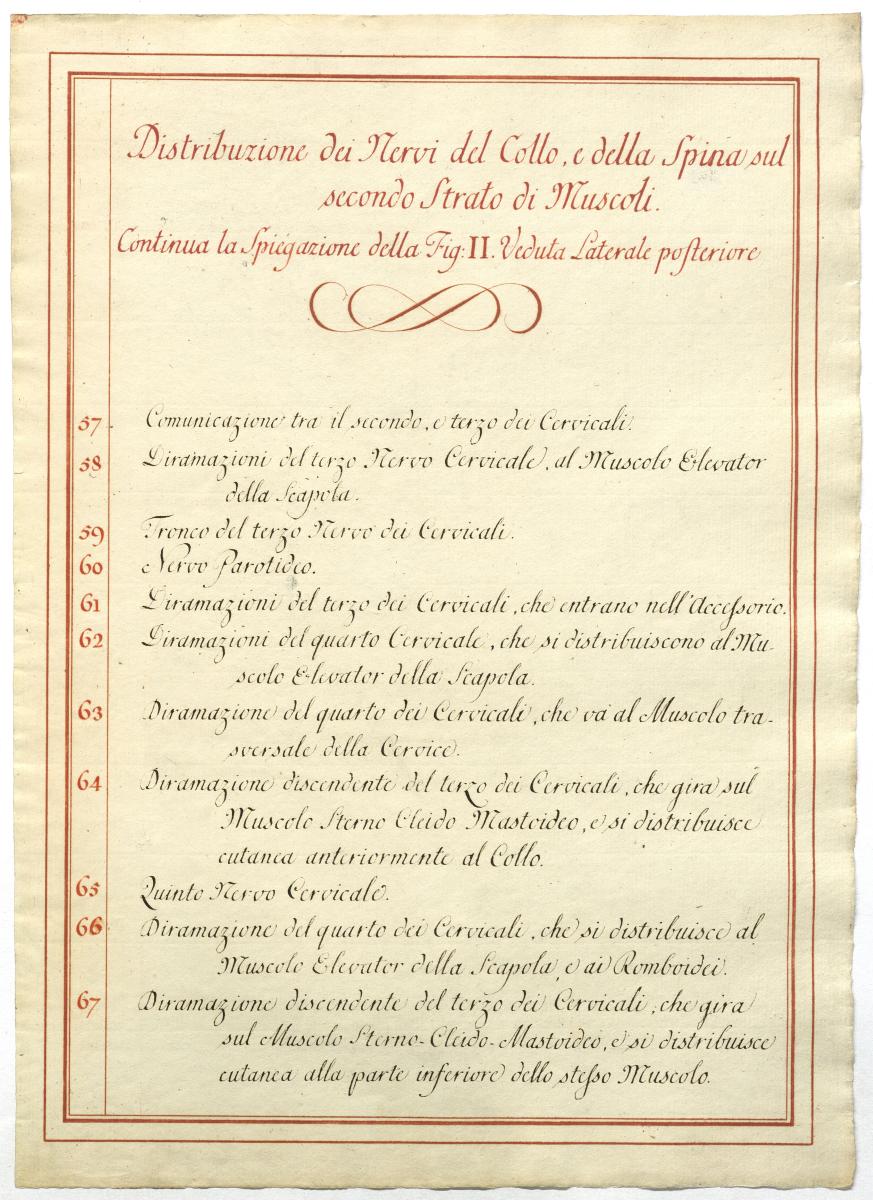 Distribuzione dei Nervi del Collo, e della Spina sul
secondo Strato di Muscoli.
Continua la Spiegazione della Fig: II. Veduta Laterale posteriore
57 Comunicazione tra il secondo, e terzo dei Cervicali.
58 Diramazioni del terzo Nervo Cervicale, al Muscolo Elevator
della Scapola.
59 Tronco del terzo Nervo dei Cervicali.
60 Nervo Parotideo.
61 Diramazioni del terzo dei Cervicali, che entrano nell'Accessorio.
62 Diramazioni del quarto Cervicale, che si distribuiscono al Mu-
scolo Elevator della Scapola.
63 Diramazione del quarto dei Cervicali, che va al Muscolo tra-
sversale della Cervice.
64 Diramazione discendente del terzo dei Cervicali, che gira sul
Muscolo Sterno Cleido Mastoideo, e si distribuisce
cutanea anteriormente al Collo.
65 Quinto Nervo Cervicale.
66 Diramazione del quarto dei Cervicali, che si distribuisce al
Muscolo Elevator della Scapola, e ai Romboidei.
67 Diramazione discendente del terzo dei Cervicali, che gira
sul Muscolo Sterno-Cleido-Mastoideo, e si distribuisce
cutanea alla parte inferiore dello stesso Muscolo.